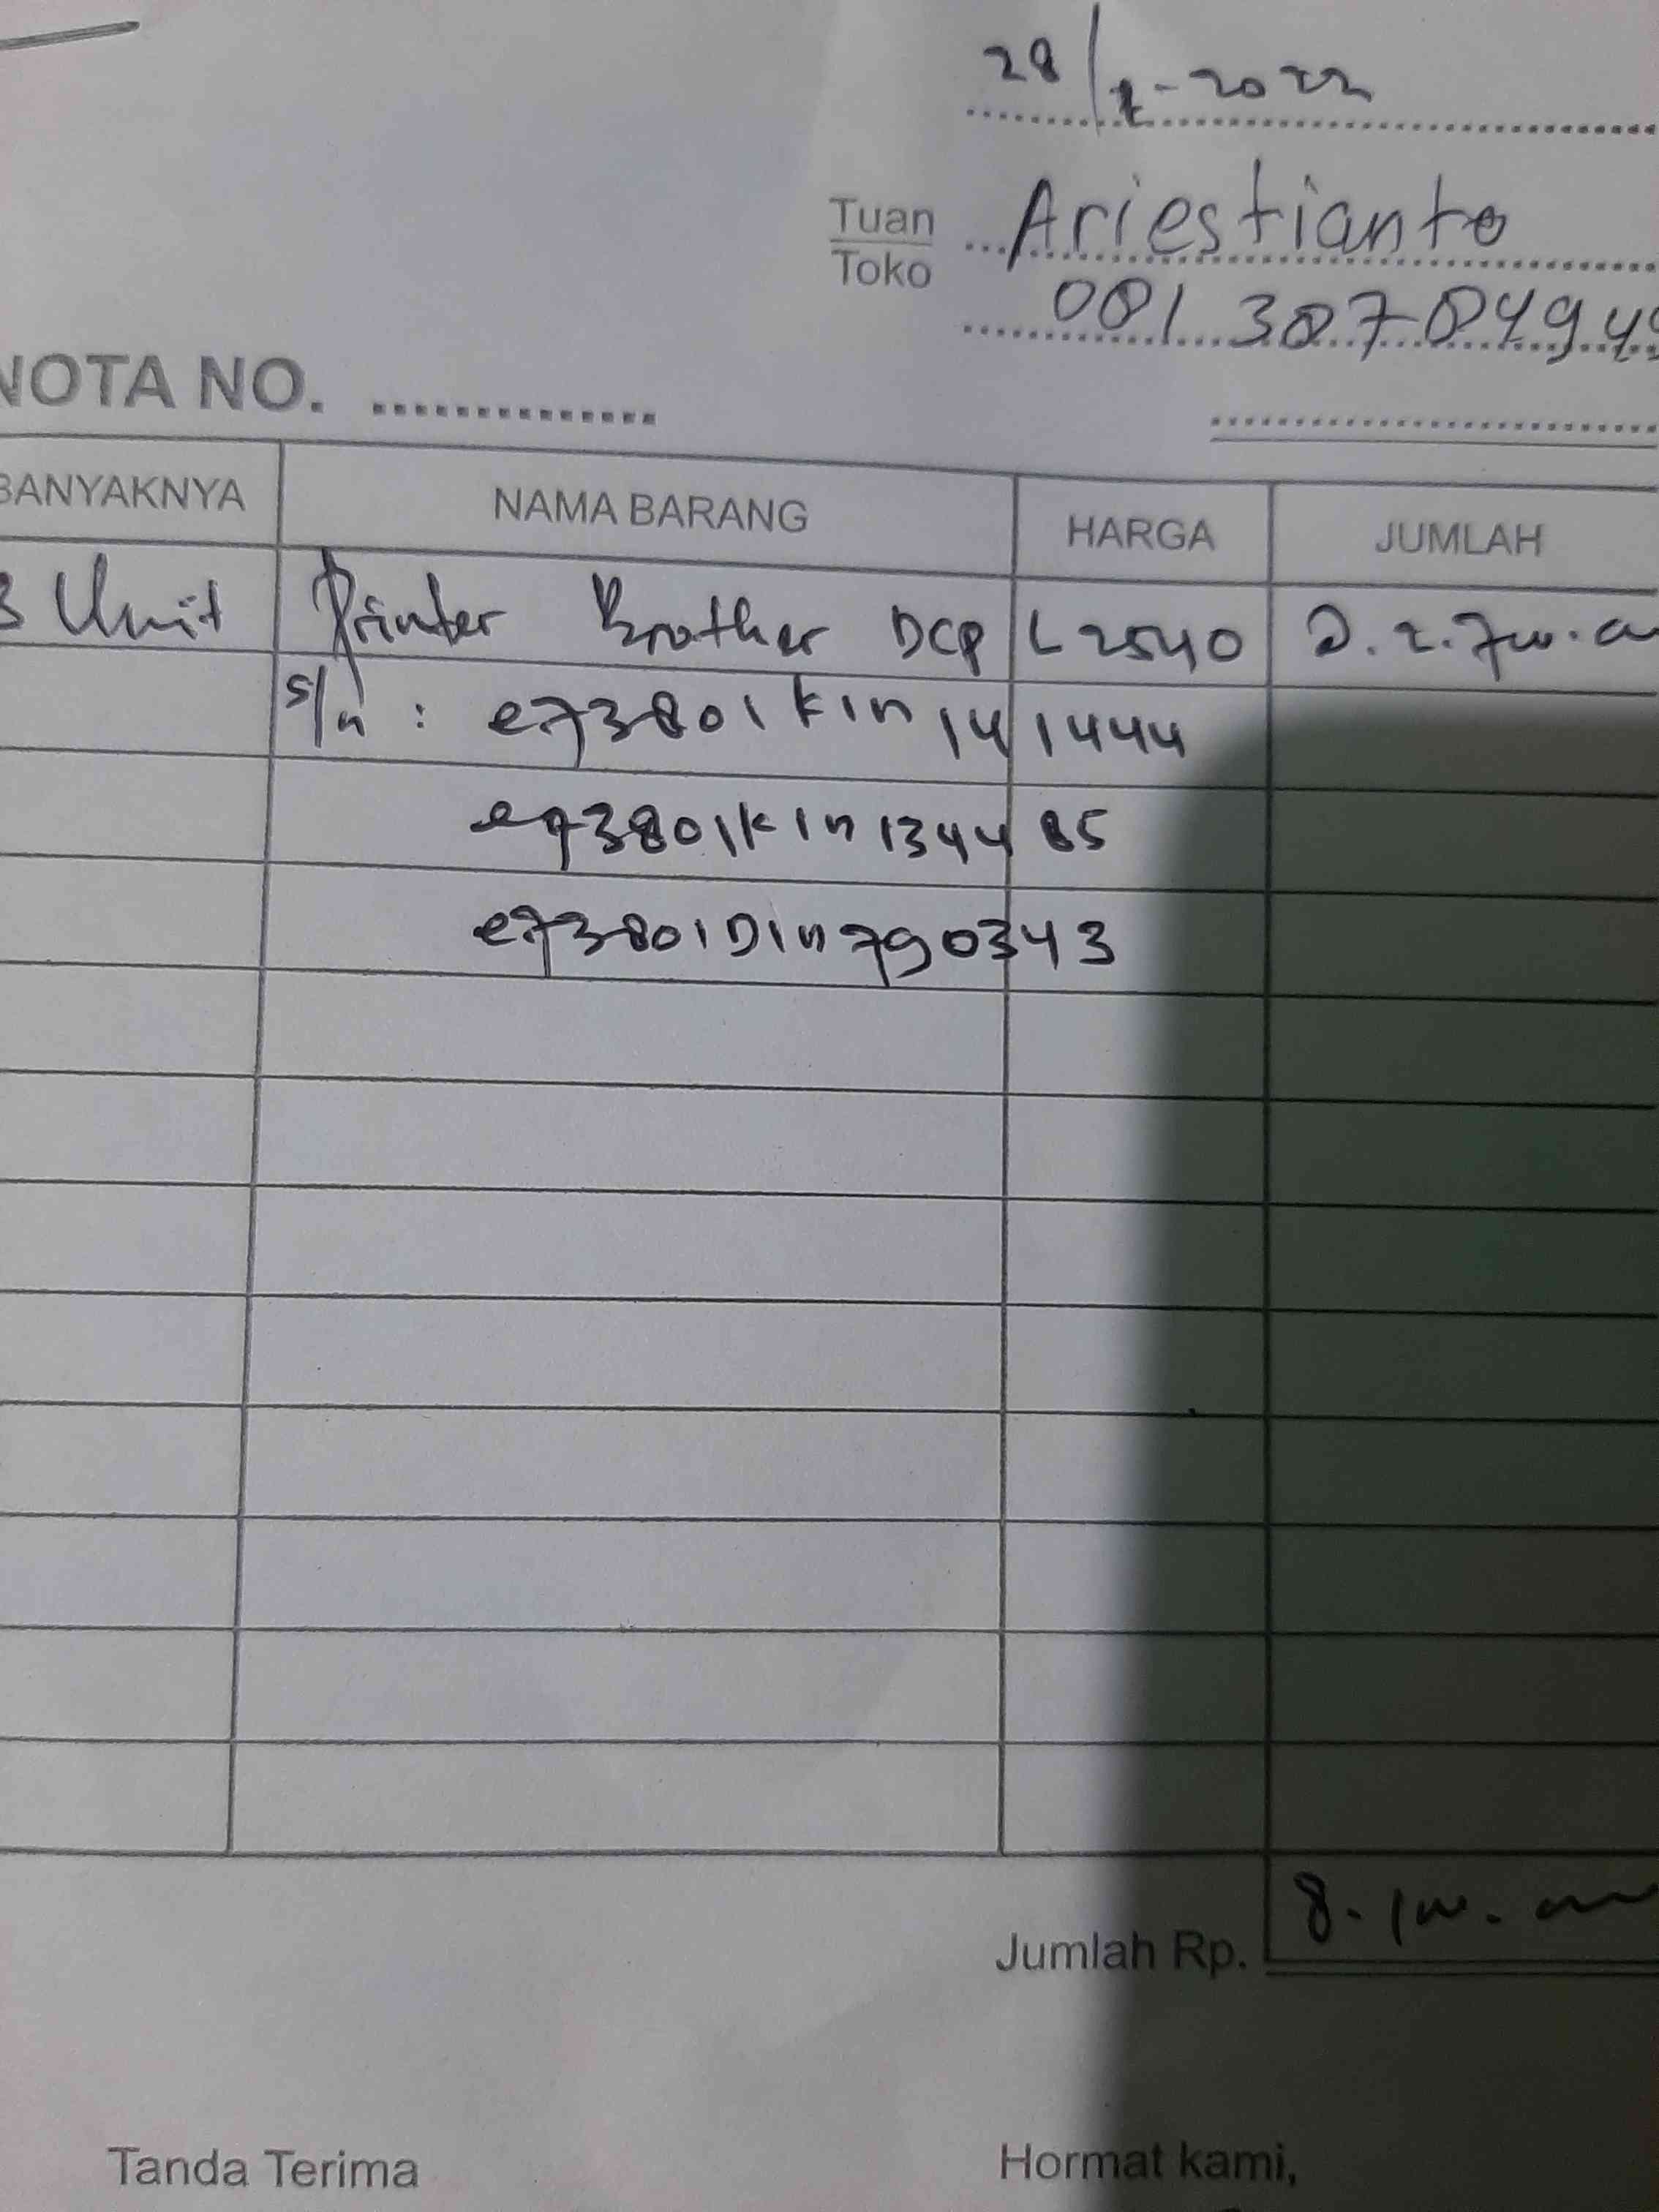 28/7-2022
Tuan Ariestianto
Toko
081 307 84949
NOTA NO.
BANYAKNYA NAMA BARANG HARGA JUMLAH
3 Unit Printer Brother DCP L2540 @. 2.700.00
S/n : e73801k1n141444
e73801k1n134485
e73801D1n790343
Jumlah Rp. 8.100.000
Tanda Terima Hormat kami,